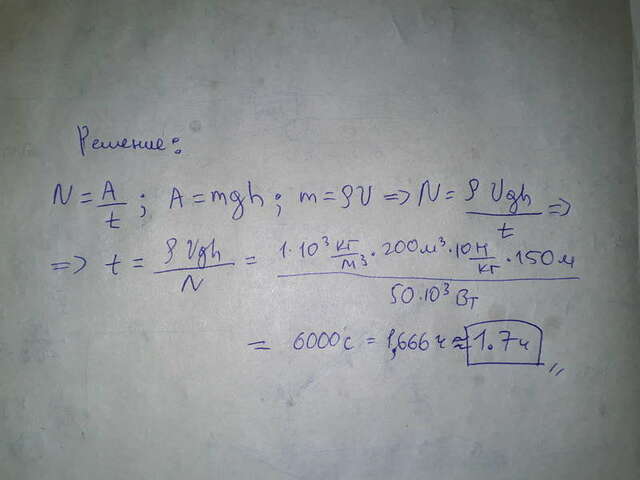 Решение:
N = A/t ; A = mgh ; m = ρV => N = ρVgh/t =>
=> t = ρVgh/N = 1·10³ кг/м³ · 200м³ · 10 Н/кг · 150м / 50·10³ Вт
= 6000с = 1,666ч ≈ 1.7ч